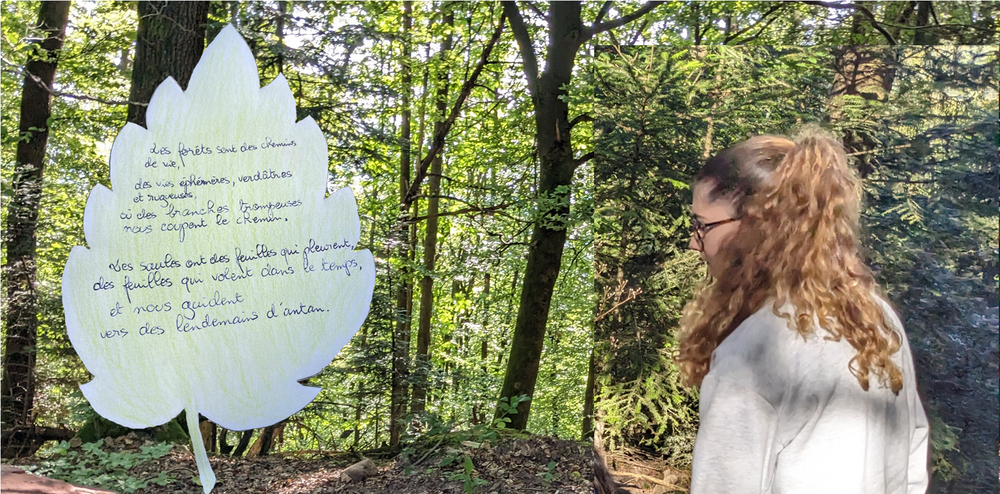 Les forêts sont des chemins
de vie,
des vies éphémères, verdâtres
et rugueuses,
où des branches trompeuses
nous coupent le chemin.
Les saules ont des feuilles qui pleurent,
des feuilles qui volent dans le temps,
et nous guident
vers des lendemains d'antan.